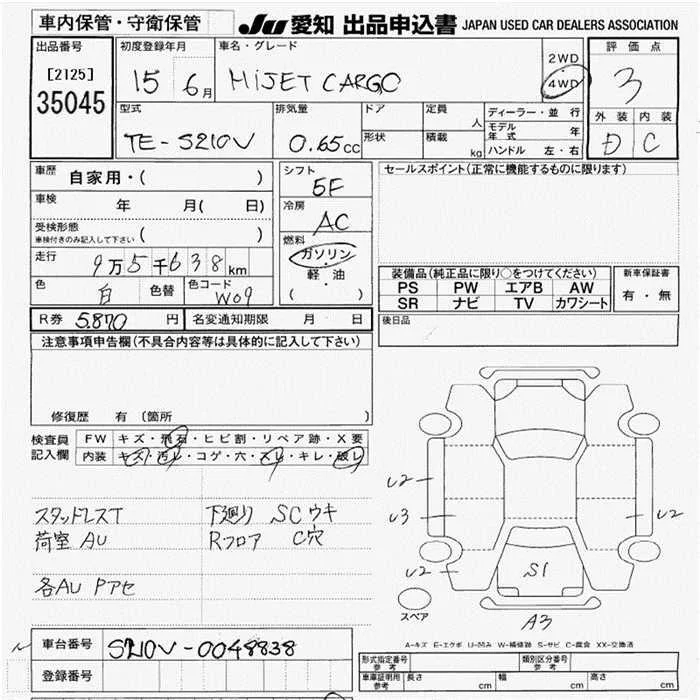 車内保管・守衛保管 JU 愛知 出品申込書 JAPAN USED CAR DEALERS ASSOCIATION
出品番号 初度登録年月 車名・グレード 評価点
[2125] 15 6月 HiJET CARGO 2WD 3
35045 4WD
型式 排気量 ドア 定員 人 ディーラー・並行 外装 内装
TE-S210V 0.65cc 形状 積載 kg モデル年式 年 D C
ハンドル 左・右
車歴 自家用・( ) シフト 5F セールスポイント(正常に機能するものに限ります)
車検 年 月( 日) 冷房 AC
受検形態
車検付きのみ記入して下さい ( )
燃料 ガソリン・軽油
( )
走行 9万5千638km
色 白 色替 色コード W09
装備品(純正品に限り○をつけてください) 新車保証書
PS PW エアB AW 有・無
SR ナビ TV カワシート
R券 5,870円 名変通知期限 月 日 後日品
注意事項申告欄(不具合内容等は具体的に記入して下さい)
修復歴 有 (箇所 )
検査員記入欄 FW キズ・飛石・ヒビ割・リペア跡・X要
内装 キズ・汚レ・コゲ・穴・スレ・キレ・破レ
スタッドレスT 下廻り SCウキ
荷室 AU Rフロア C穴
各AU Pアセ
U2
U3 U2
U2 S1
スペア A3
A-キズ E-エクボ U-凹み W-補修跡 S-サビ C-腐食 XX-交換済
車台番号 S210V-0048838
登録番号
形式指定番号 参考 類別区分番号 参考
車庫証明用 参考 長さ cm 幅 cm 高さ cm